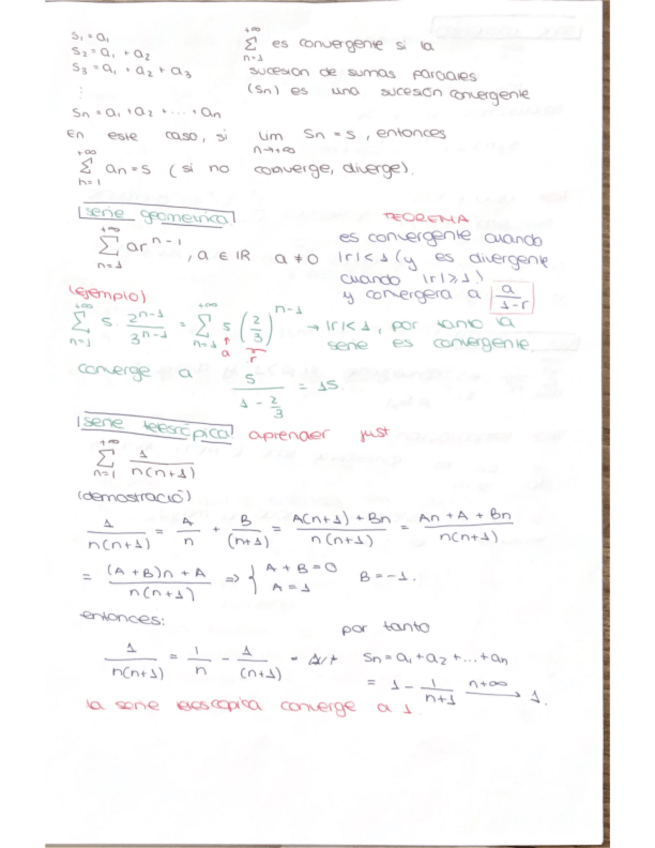 S₁ = a₁
S₂ = a₁ + a₂
S₃ = a₁ + a₂ + a₃
⋮
Sn = a₁ + a₂ + ... + an
+∞ Σ n=1 es convergente si la
sucesión de sumas parciales
(Sn) es una sucesión convergente
En este caso, si lim n→+∞ Sn = S, entonces
+∞ Σ n=1 an = S (si no converge, diverge).
serie geometrica
+∞ Σ n=1 ar^(n-1), a ∈ IR a ≠ 0
TEOREMA
es convergente cuando
|r| < 1 (y es divergente
cuando |r| ≥ 1)
y convergerá a a/(1-r)
(ejemplo)
+∞ Σ n=1 5 · 2^(n-1)/3^(n-1) = +∞ Σ n=1 5 (2/3)^(n-1) → |r| < 1, por tanto la
↑ a r serie es convergente
converge a 5/(1 - 2/3) = 15.
serie telescópica aprender just
+∞ Σ n=1 1/(n(n+1))
(demostració)
1/(n(n+1)) = A/n + B/(n+1) = (A(n+1) + Bn)/(n(n+1)) = (An + A + Bn)/(n(n+1))
= ((A+B)n + A)/(n(n+1)) => { A + B = 0 A = 1 B = -1.
entonces:
1/(n(n+1)) = 1/n - 1/(n+1) =
por tanto
Sn = a₁ + a₂ + ... + an
= 1 - 1/(n+1) n+∞ → 1.
la serie telescopica converge a 1.